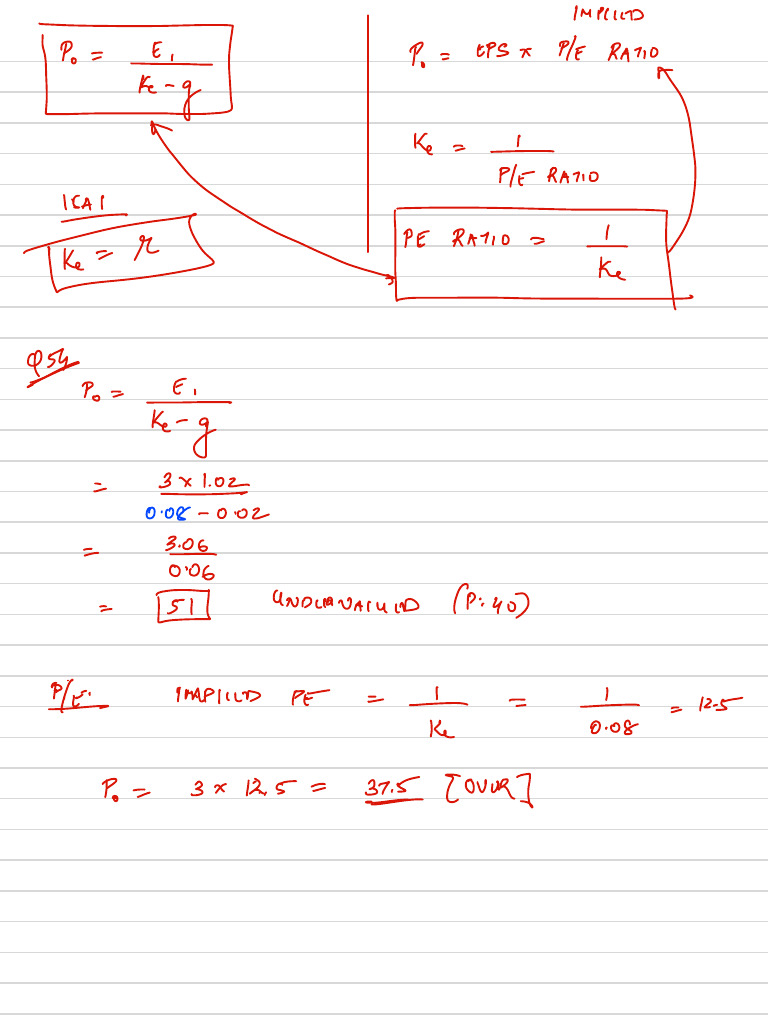 P₀ = E₁ / (Ke - g)
ICAI
Ke = r
IMPLIED
P₀ = EPS × P/E RATIO
Ke = 1 / P/E RATIO
PE RATIO = 1 / Ke
Q54
P₀ = E₁ / (Ke - g)
= 3 × 1.02 / (0.08 - 0.02)
= 3.06 / 0.06
= 51 UNDERVALUED (P: 40)
P/E. IMPLIED PE = 1 / Ke = 1 / 0.08 = 12.5
P₀ = 3 × 12.5 = 37.5 [OVER]